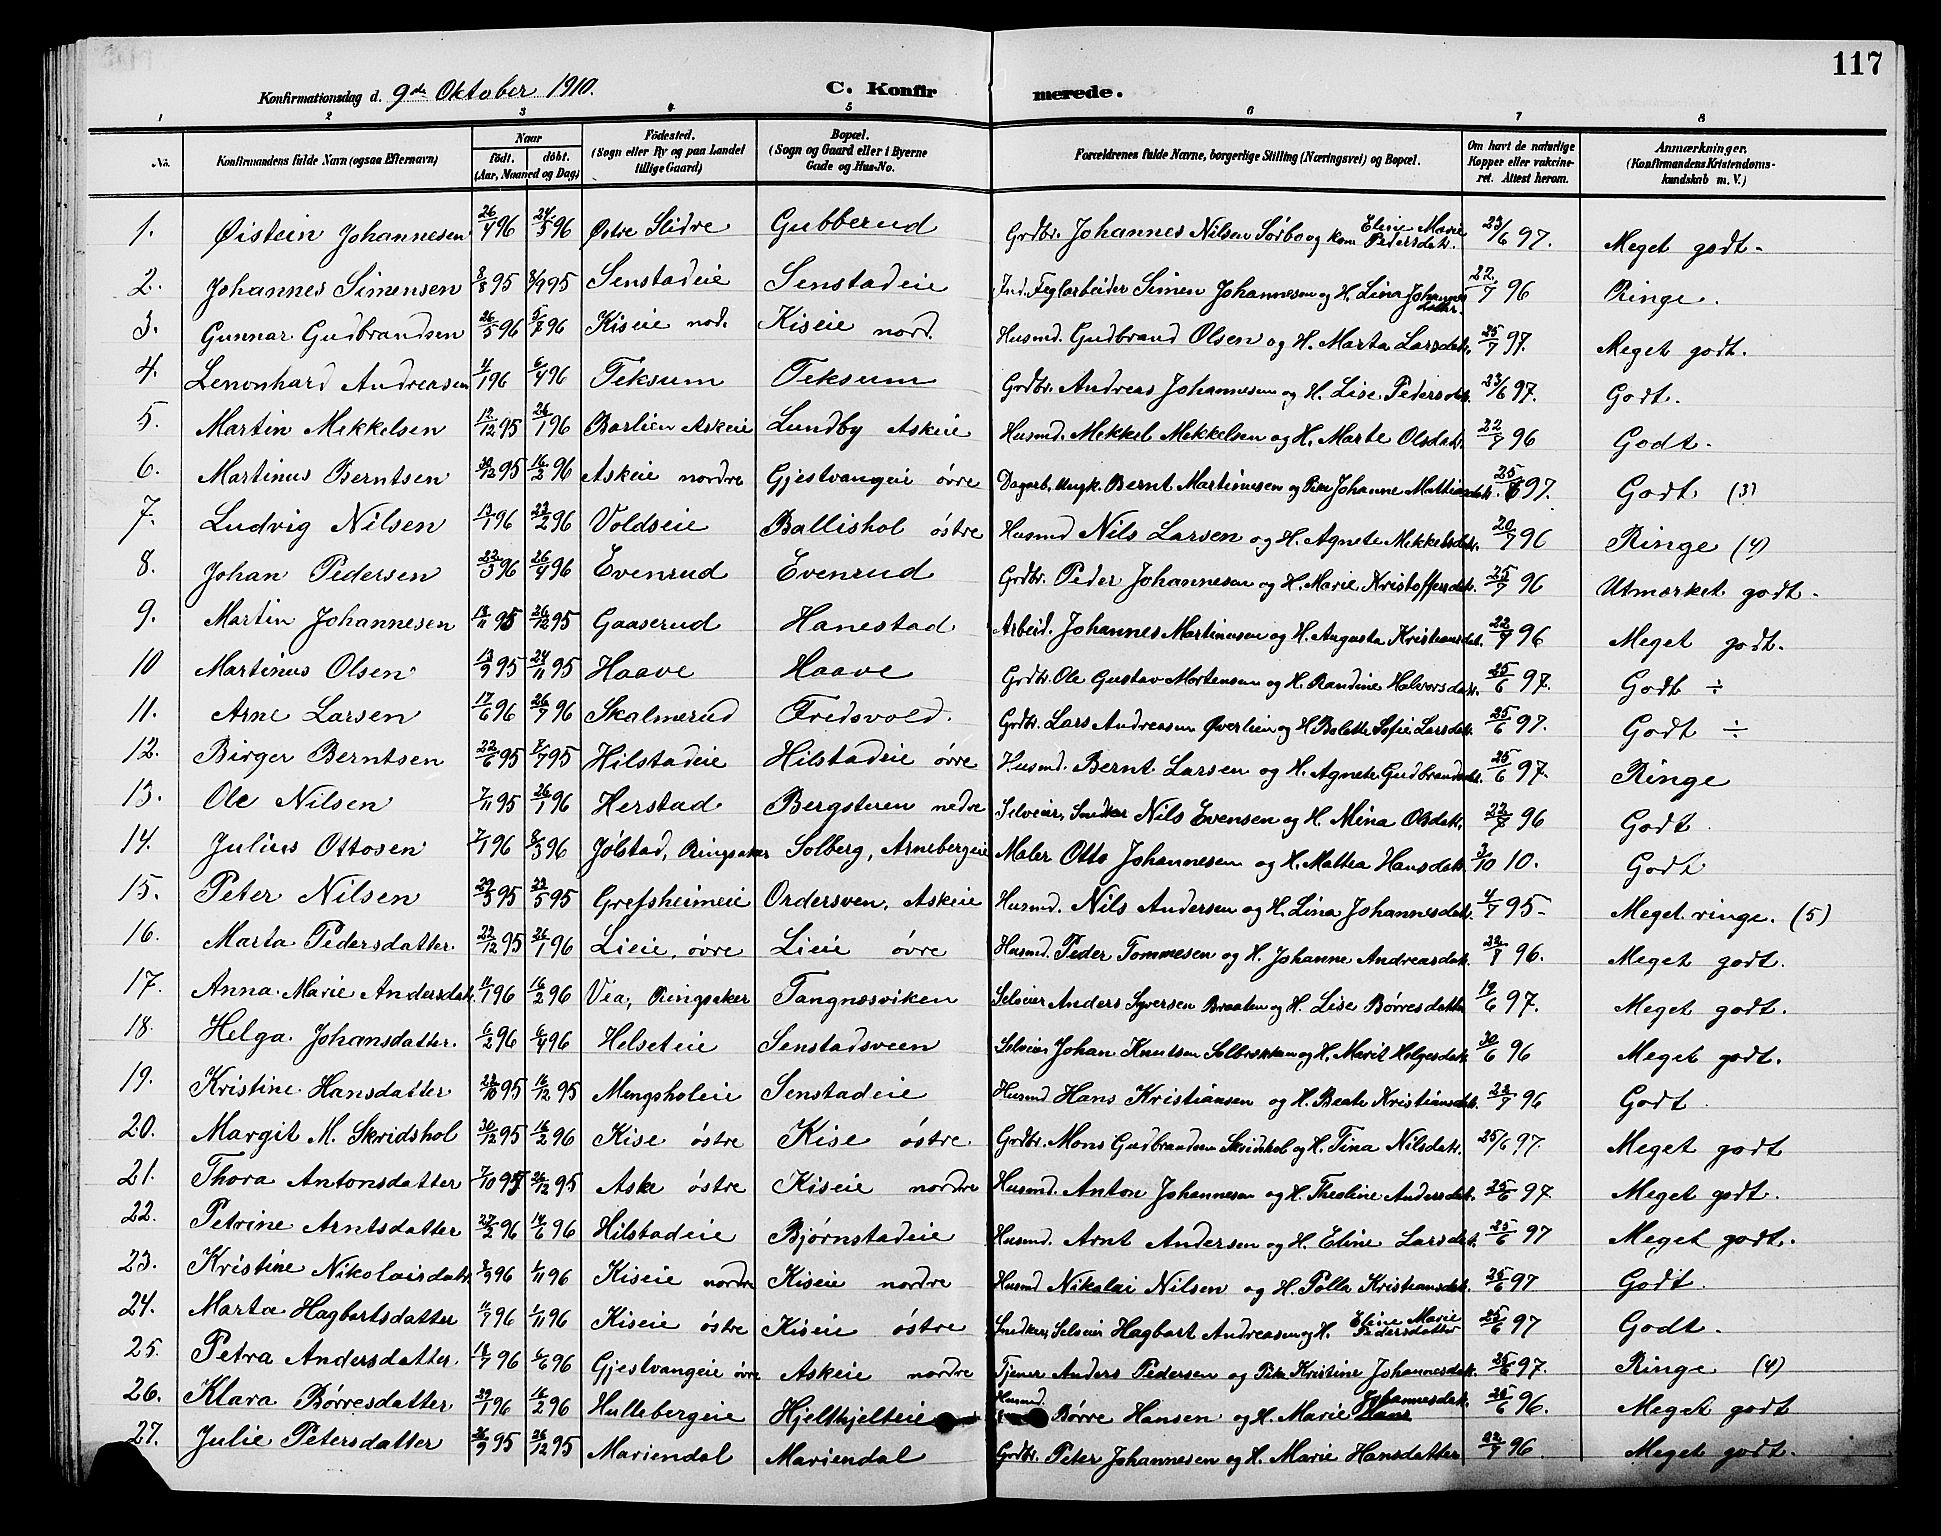 117
Konfirmationsdag d. 9de Oktober 1910. C. Konfirmerede.
1 2 3 4 5 6 7 8
No. Konfirmandens fulde Navn (ogsaa Efternavn) Naar født. døbt. (Aar, Maaned og Dag) Födested. (Sogn eller By og paa Landet tillige Gaard) Bopæl. (Sogn og Gaard eller i Byerne Gade og Hus-No. Forældrenes fulde Navne, borgerlige Stilling (Næringsvei) og Bopæl. Om havt de naturlige Kopper eller vakcineret. Attest herom. Anmærkninger. (Konfirmandens Kristendomskundskab m. V.)
1. Øistein Johannesen 26/4 96 24/5 96 Østre Slidre Gubberud Grdbr. Johannes Nilsen Sørbo og Kone Eline Marie Pedersdatr. 23/6 97. Meget godt.
2. Johannes Simensen 8/8 95 8/9 95 Senstadeie Senstadeie Ind. Teglarbeider Simen Johannesen og H. Lina Johannesdatter. 22/7 96 Ringe.
3. Gunnar Gudbrandsen 26/5 96 5/7 96 Kiseie nod. Kiseie nord. Husmd. Gudbrand Olsen og H. Marta Larsdatr. 25/7 97. Meget godt.
4. Lenonhard Andreasen 4/1 96 6/4 96 Teksum Teksum Grdbr. Andreas Johannesen og H. Lise Pedersdatr. 23/6 97. Godt.
5. Martin Mekkelsen 12/12 95 26/1 96 Barlien Askeie Lundby Askeie Husmd. Mekkel Mekkelsen og H. Marte Olsdatr. 22/7 96 Godt.
6. Martinus Berntsen 30/12 95 16/2 96 Askeie nordre Gjestvangeie övre Dagarb. Ungk. Bernt Martinusen og Pike Johanne Mathiasdatr. 25/6 97. Godt (3)
7. Ludvig Nilsen 13/1 96 23/2 96 Voldseie Ballishol östre Husmd Nils Larsen og H. Agnete Mekkelsdatr. 20/7 96 Ringe (4)
8. Johan Pedersen 22/3 96 26/4 96 Evenrud Evenrud Grdbr. Peder Johannesen og H. Marie Kristoffersdatr. 25/7 96 Utmærket godt.
9. Martin Johannesen 18/11 95 26/12 95 Gaaserud Hanestad Arbeid. Johannes Martinusen og H. Augusta Kristiansdatr. 22/7 96 Meget godt.
10 Martinus Olsen 13/9 95 24/11 95 Haave Haave Grdbr. Ole Gustav Mortensen og H. Randine Halvorsdatr. 25/6 97. Godt ÷
11. Arne Larsen 17/6 96 26/7 96 Skalmerud Fredsvold. Grdbr. Lars Andreasen Øverlien og H. Bolette Sofie Larsdatr. 25/6 97. Godt ÷
12. Birger Berntsen 22/6 95 7/7 95 Hilstadeie Hilstadeie övre Husmd. Bernt Larsen og H. Agnete Gudbrandsdatr. 25/6 97. Ringe
13. Ole Nilsen 7/11 95 26/1 96 Herstad Bergsteren nedre Selveier, Snedker Nils Evensen og H. Mina Olsdatr. 22/7 96 Godt.
14. Julius Ottosen 7/1 96 8/3 96 Jølstad, Ringsaker Solberg, Arnebergeie Maler Otto Johannesen og H. Mathea Hansdatr. 3/10 10. Godt
15. Peter Nilsen 29/3 95 23/5 95 Grefsheimeie Ordersven, Askeie Husmd. Nils Andersen og H. Lina Johannesdatr. 4/7 95. Meget ringe. (5)
16. Marta Pedersdatter. 22/12 95 26/1 96 Lieie, övre Lieie övre Husmd. Peder Tommesen og H. Johanne Andreasdatr. 22/7 96. Meget godt.
17. Anna Marie Andersdatr. 11/1 96 16/2 96 Vea, Ringsaker Tangnæsviken Selveier Anders Syversen Braaten og H. Lise Børresdatter 19/6 97. Meget godt.
18. Helga Johansdatter. 6/2 96 6/4 96 Helseteie Senstadsveen Selveier Johan Knutsen Solbrækken og H. Marit Helgesdatr. 30/6 96 Meget godt.
19. Kristine Hansdatter 23/10 95 16/12 95 Mengsholeie Senstadeie Husmd Hans Kristiansen og H. Beate Kristiansdatr. 22/7 96 Godt
20. Margit M. Skridshol 30/12 95 16/2 96 Kise östre Kise östre. Grdbr. Mons Gudbrandsen Skridshol og H. Tina Nilsdatr. 25/6 97. Meget godt
21. Thora Antonsdatter 7/10 95 26/12 95 Aske östre Kiseie nordre Husmd. Anton Johannesen og H. Theoline Andersdatr. 25/6 97 Meget godt.
22. Petrine Arntsdatter 27/2 96 14/6 96 Hilstadeie Bjørnstadeie Husmd. Arnt Andersen og H. Eline Larsdatr. 25/6 97 Meget godt.
23. Kristine Nikolaisdatr. 3/9 96 1/11 96 Kiseie nordre Kiseie nordre Husmd Nikolai Nilsen og H. Polle Kristiansdatr. 25/6 97 Godt.
24. Marta Hagbartsdatter 11/7 96 1/11 96 Kiseie östre Kiseie östre Snedker, Selveier Hagbart Andreasen og H. Eline Marie Pedersdatter 25/6 97 Godt.
25. Petra Andersdatter. 18/1 96 6/6 96 Gjestvangeie övre Askeie nordre Tjener Anders Pedersen og Pike Kristine Johannesdatr. 25/6 97. Ringe (4)
26. Klara Børresdatter 29/1 96 16/2 96 Hullebergeie Hjelkjelteie Husmd. Børre Hansen og H. Marie Johannesdatr. 25/6 96. Meget godt
27. Julie Petersdatter 26/9 95 26/12 95 Mariendal Mariendal Grdbr. Peter Johannesen og H. Marie Hansdatter 22/7 96 Meget godt.